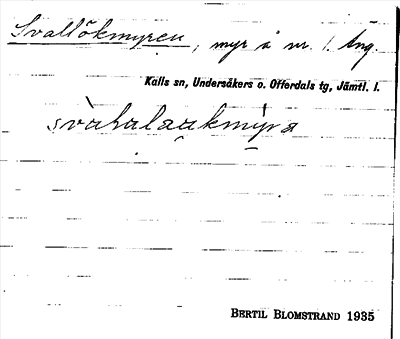 Svallökmyren, myr å nr. 1 Ång.
Kalls sn, Undersåkers o. Offerdals tg, Jämtl. l.
svàhalaukmýra
BERTIL BLOMSTRAND 1935